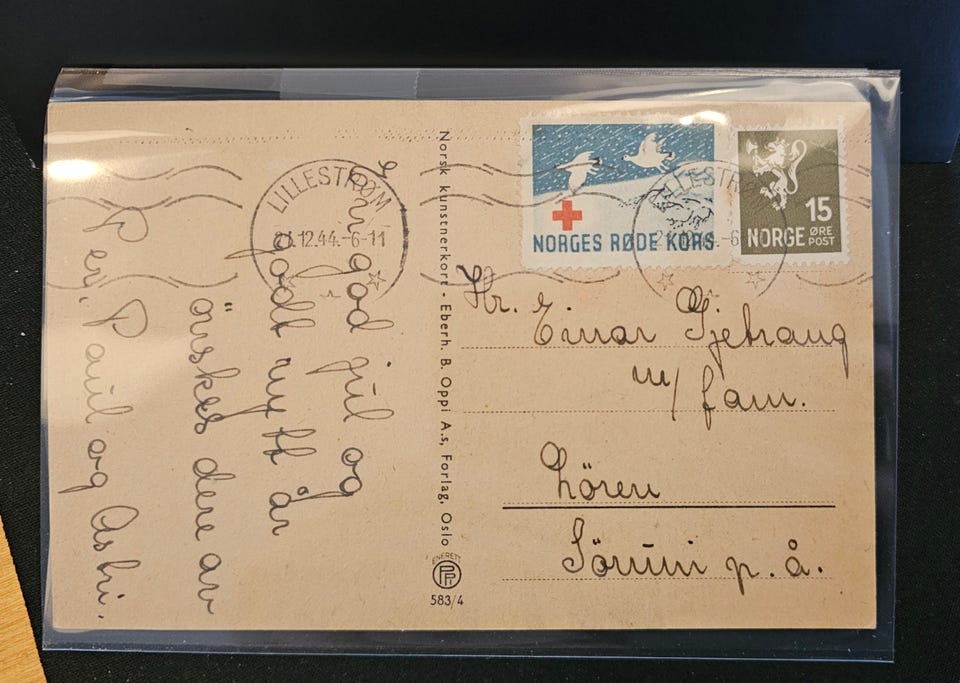 En god jul og
godt nytt år
önskes dere av
Per, Paul og Asbri.
LILLESTRØM
.12.44.-6-11
Norsk kunstnerkort - Eberh. B. Oppi A.s, Forlag, Oslo
ENERETT
583/4
NORGES RØDE KORS
15
NORGE ØRE
POST
LILLESTRØM
Hr. Einar Gjetrang
m/ fam.
Lören
Sörum p. å.